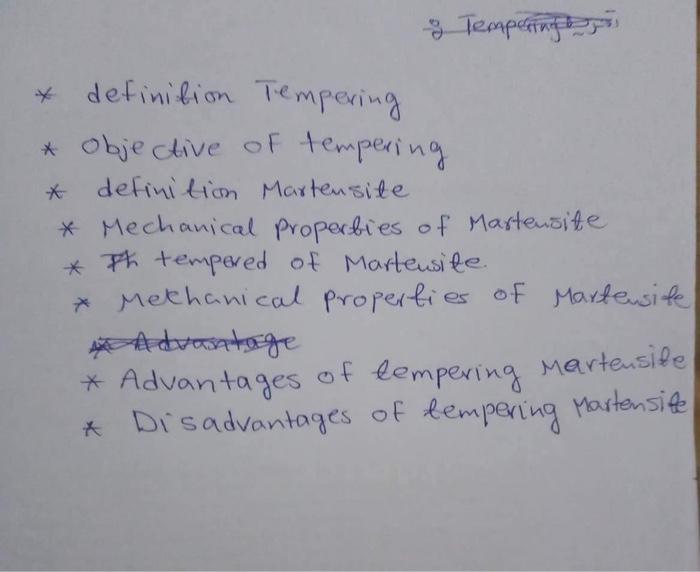 Tempering
* definition Tempering
* Objective of tempering
* definition Martensite
* Mechanical properties of Martensite
* Th tempered of Martensite.
* Mechanical properties of Martensite
* Advantage
* Advantages of tempering Martensite
* Disadvantages of tempering Martensite